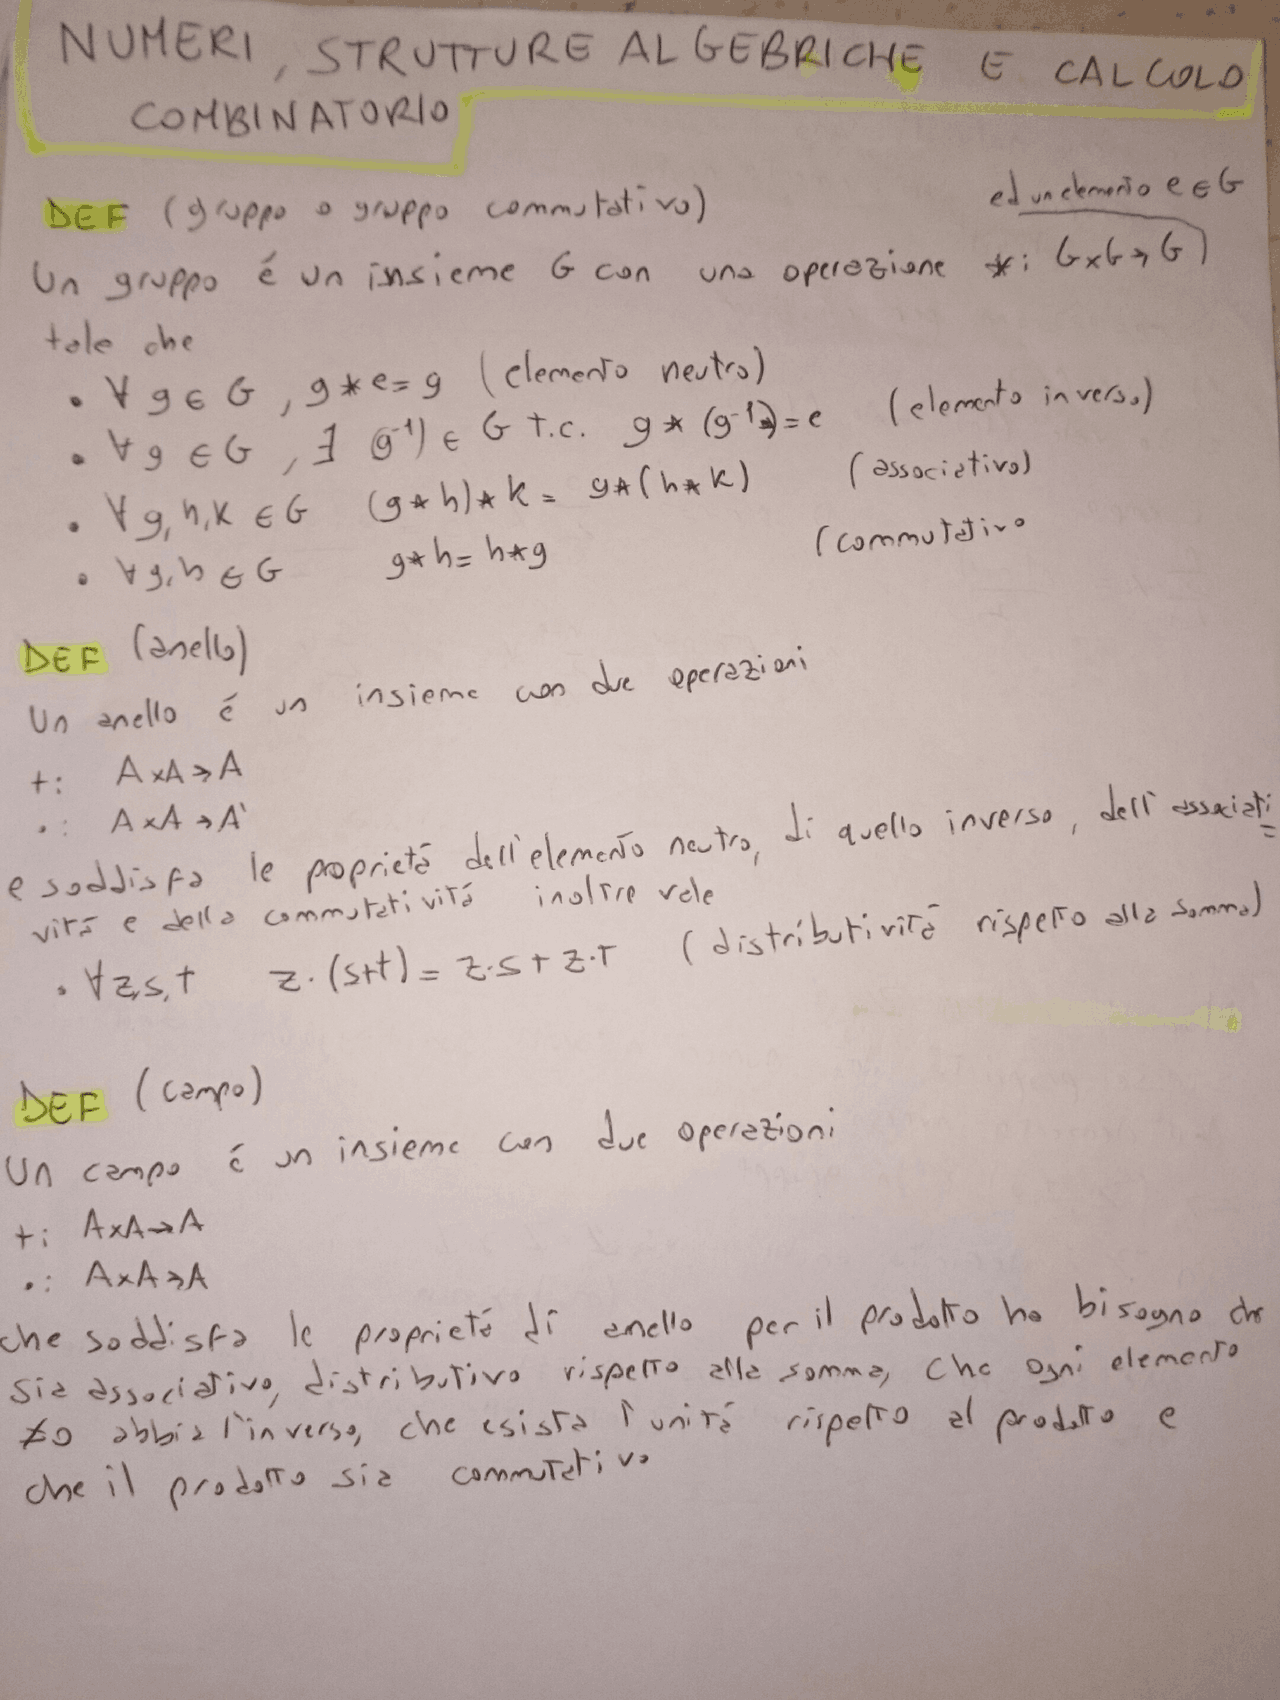 NUMERI, STRUTTURE ALGEBRICHE E CALCOLO
COMBINATORIO
DEF (gruppo o gruppo commutativo)
ed un elemento e ∈ G
Un gruppo é un insieme G con una operazione *: G×G→G
tale che
• ∀ g ∈ G, g * e = g (elemento neutro)
• ∀ g ∈ G, ∃ (g⁻¹) ∈ G T.c. g * (g⁻¹) = e (elemento inverso)
• ∀ g, h, k ∈ G (g * h) * k = g * (h * k) (associativa)
• ∀ g, h ∈ G g * h = h * g (commutativo
DEF (anello)
Un anello é un insieme con due operazioni
+: A×A→A
•: A×A→A
e soddisfa le proprietá dell'elemento neutro, di quello inverso, dell'associati=
vitá e della commutativitá inoltre vale
• ∀ z, s, t z·(s+t) = z·s + z·t (distributivitá rispetto alla somma)
DEF (campo)
Un campo é un insieme con due operazioni
+: A×A→A
•: A×A→A
che soddisfa le proprietá di anello per il prodotto ho bisogno che
sia associativo, distributivo rispetto alla somma, che ogni elemento
≠0 abbia l'inverso, che esista l'unitá rispetto al prodotto e
che il prodotto sia commutativo